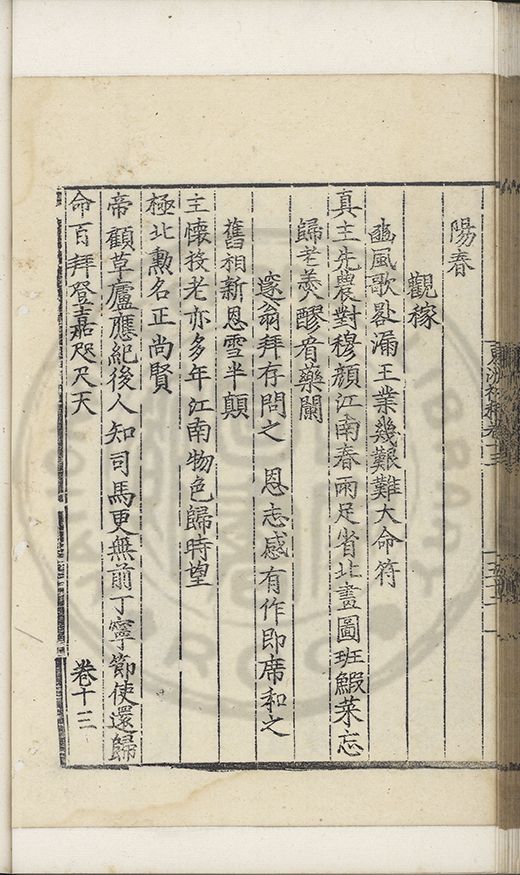 陽春
觀稼
豳風歌畧漏王業幾艱難大命符
真主先農對穆顔江南春雨足省北畫圖班鰕菜忘
歸老羮醪看藥闌
邃翁拜存問之 恩志感有作即席和之
舊相新恩雪半顛
主懷投老亦多年江南物色歸時望
極北勲名正尚賢
帝顧草廬應紀後人知司馬更無前丁寧節使還歸
命百拜登嘉咫尺天
卷十三